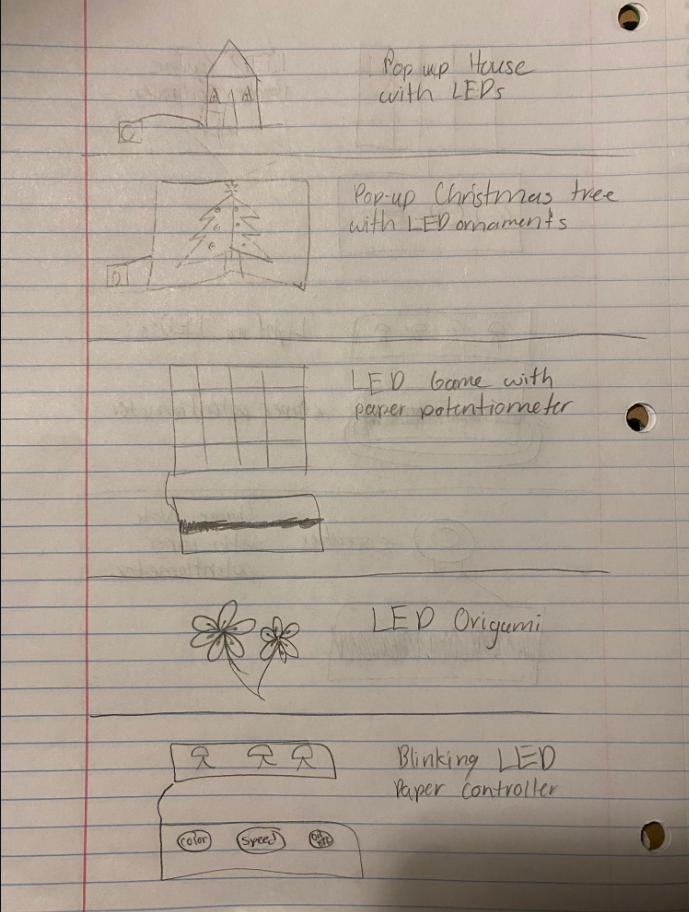 Pop up House
with LEDs
Pop-up Christmas tree
with LED ornaments
LED Game with
paper potentiometer
LED Origami
Blinking LED
Paper controller
color speed on/off